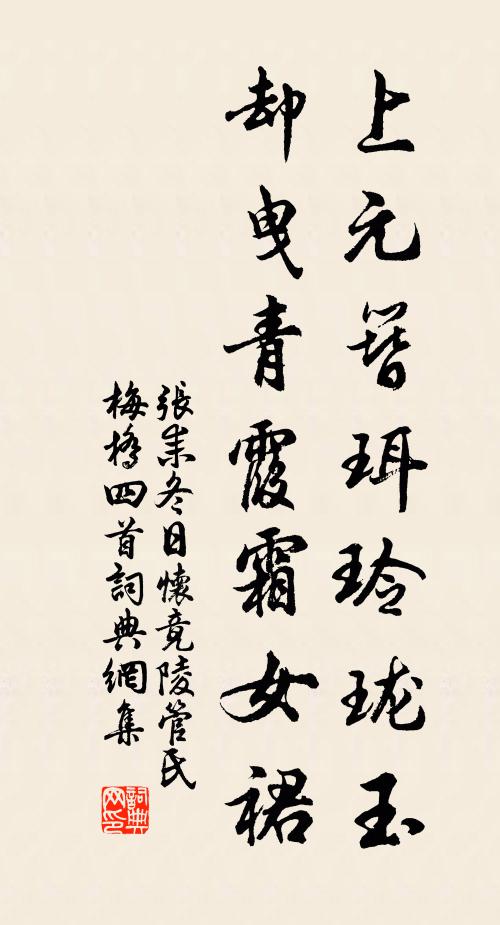 上元簪珥玲瓏玉
却曳青霞霜女裙
張耒冬日懷竟陵管氏
梅橋四首詞典網集
詞典
网印